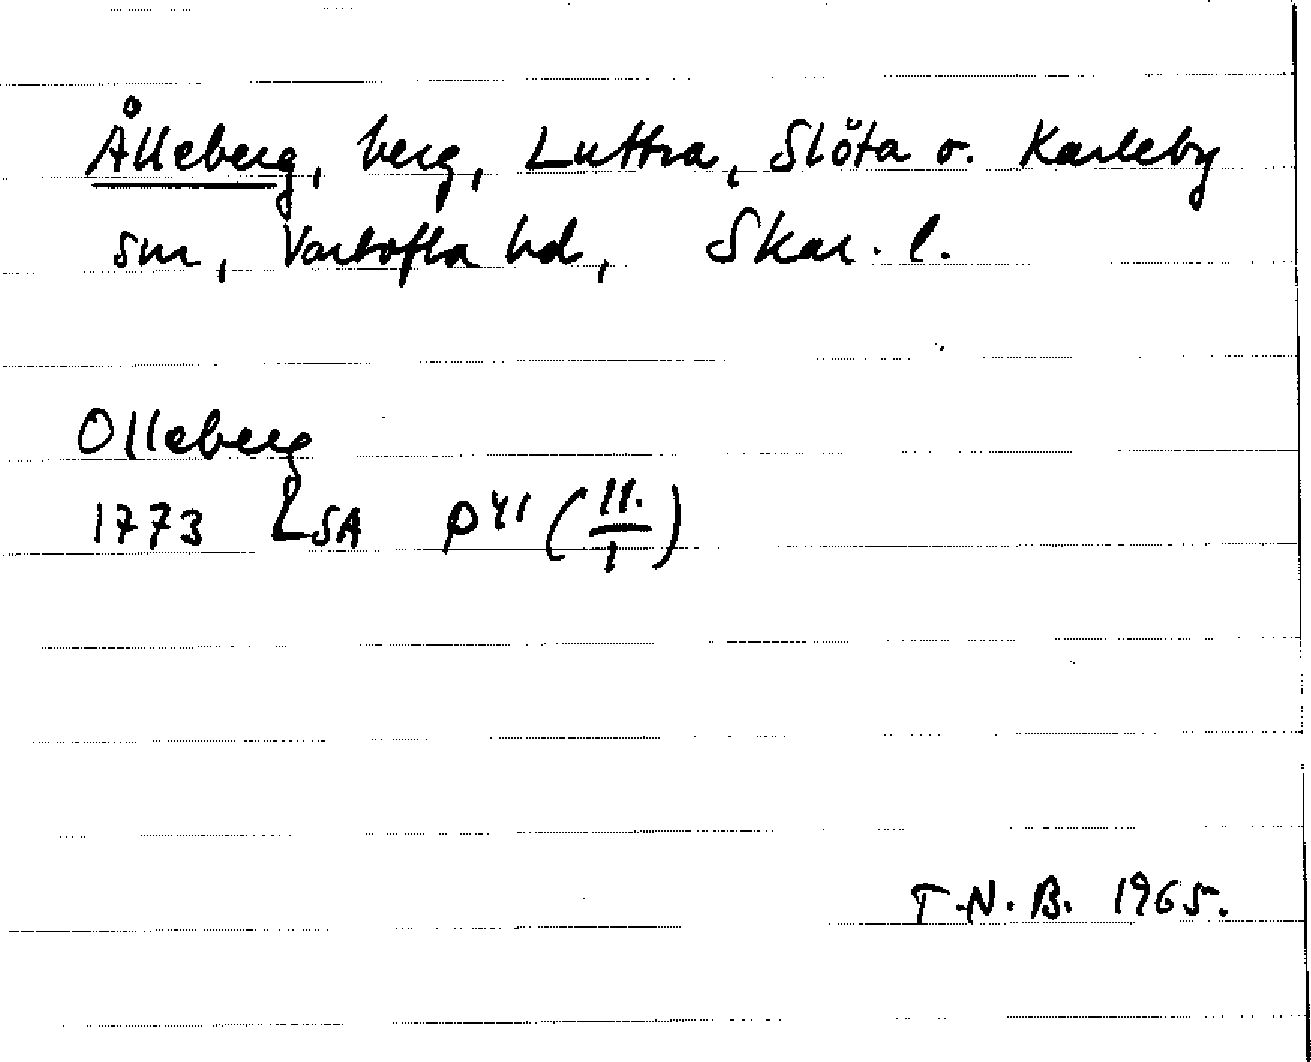 Ålleberg, berg, Luttra, Slöta o. Karleby
snr, Vartofta hd, Skar. l.
Olleberg
1773 LSA P41 (11./1)
T.N.B. 1965.